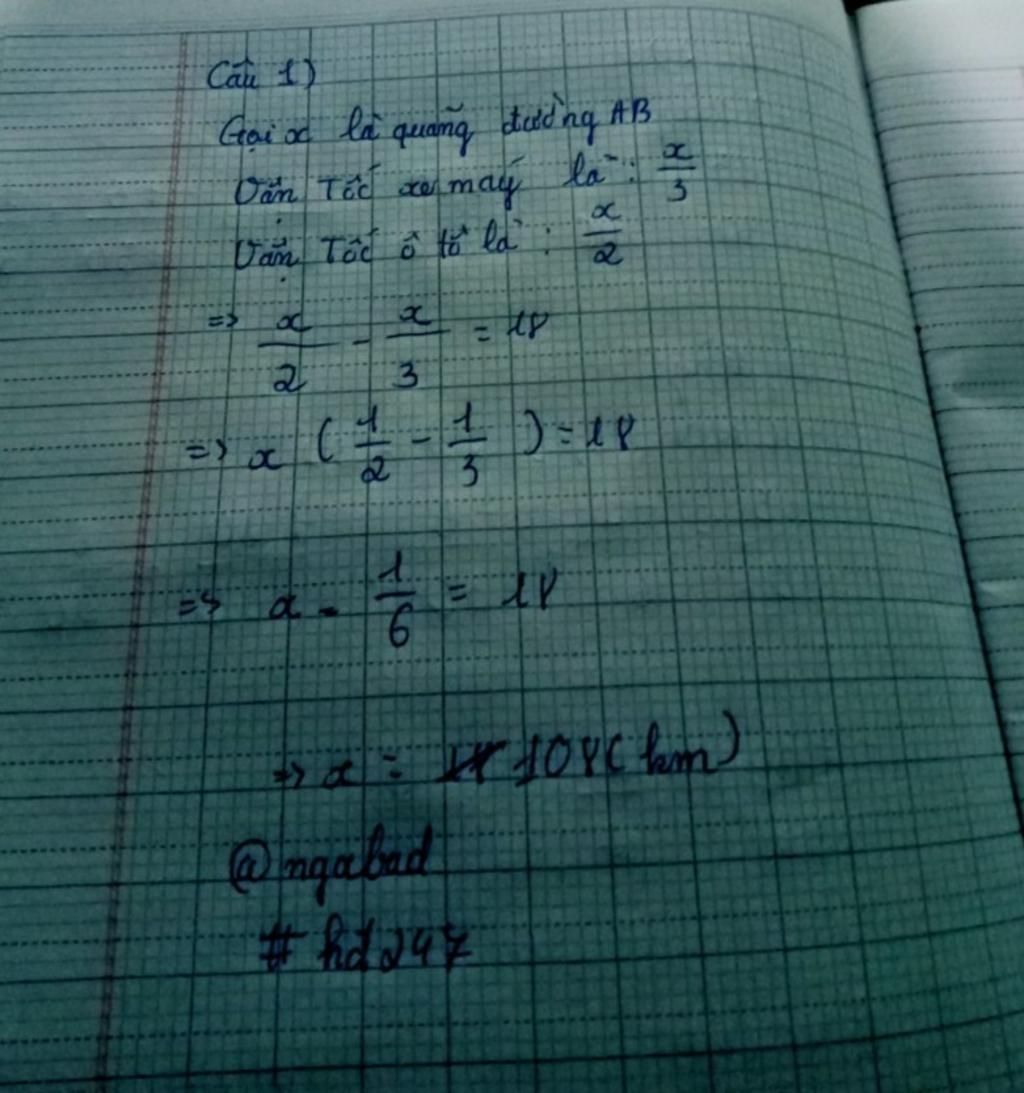 Câu 1)
Gọi x là quãng đường AB
Vận Tốc xe máy là : x/3
Vận Tốc ô tô là : x/2
=> x/2 - x/3 = 18
=> x ( 1/2 - 1/3 ) = 18
=> x . 1/6 = 18
=> x = 108 ( km )
@ngabad
# hd247